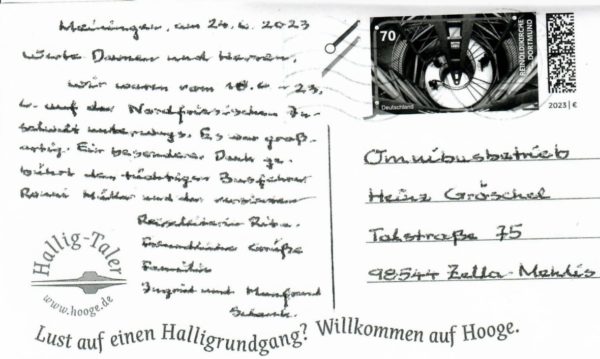 Meiningen, am 24.6.2023
Werte Damen und Herren,
wir waren vom 18.6 - 23.
6. auf der Nordfriesischen In-
selwelt unterwegs. Es war groß-
artig. Ein besonderer Dank ge-
bührt dem tüchtigen Busfahrer
Müller und der versierten
Reiseleiterin Rita.
Freundliche Grüße
Familie
Ingrid und Manfred
Schenk.
Hallig-Taler
www.hooge.de
Lust auf einen Halligrundgang? Willkommen auf Hooge.
70
REINOLDIKIRCHE
DORTMUND
Deutschland
2023 | €
Omnibusbetrieb
Heinz Gröschel
Talstraße 75
98544 Zella-Mehlis